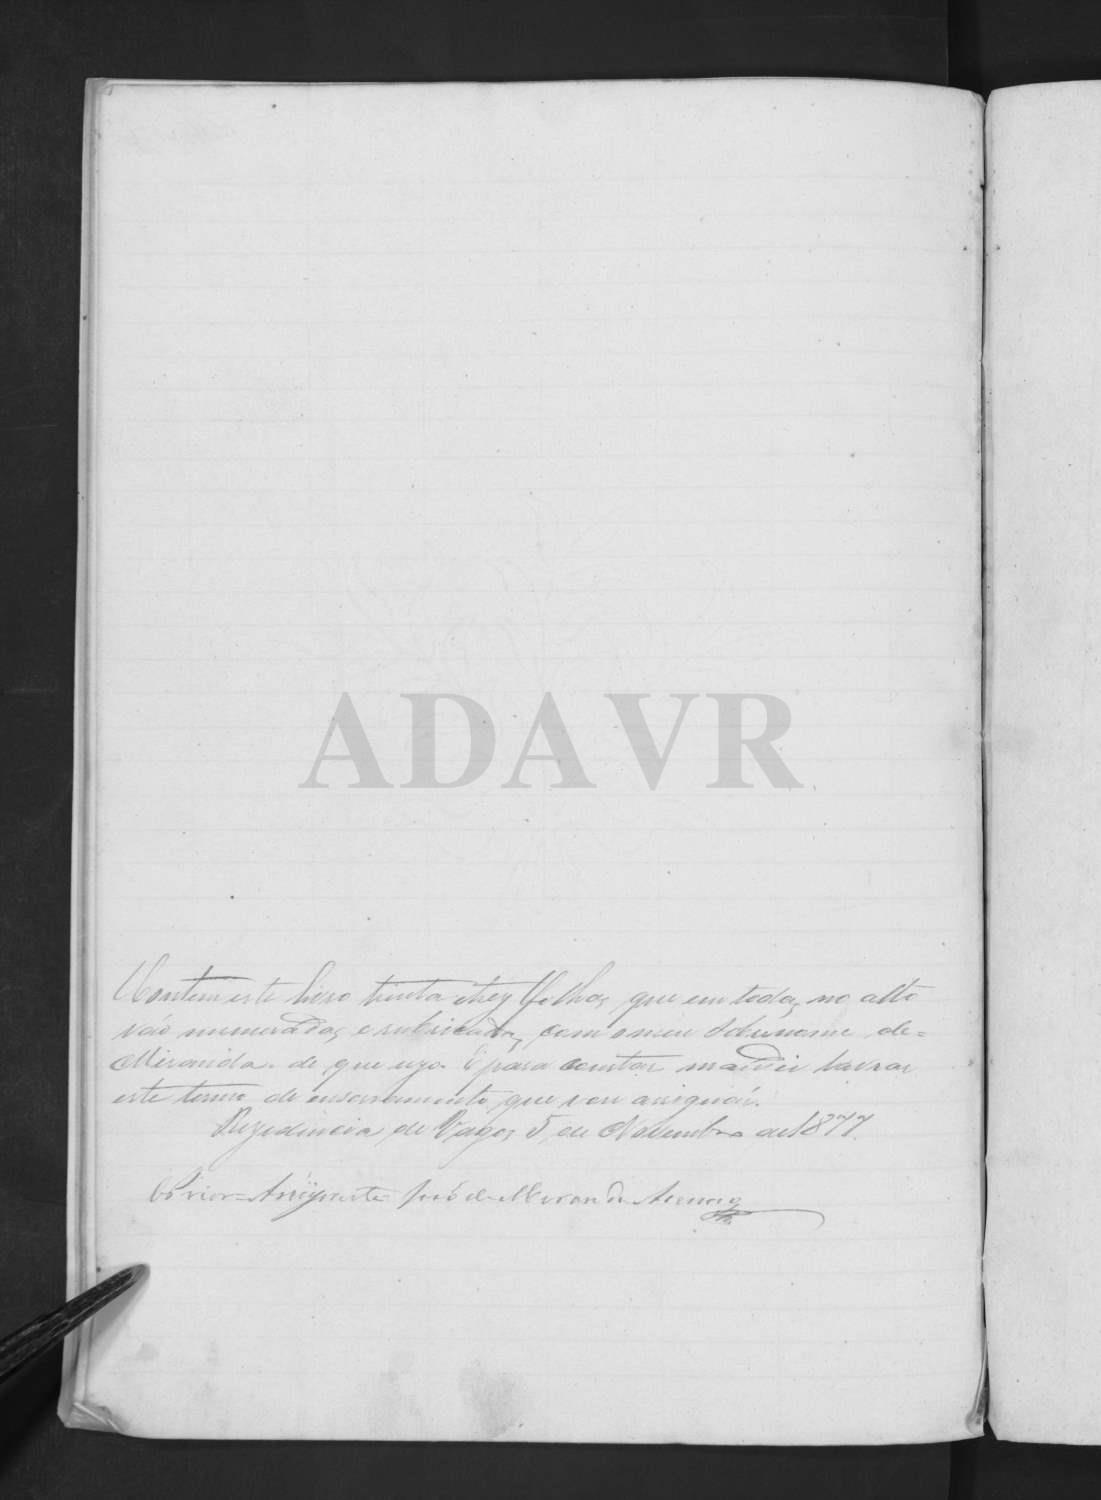 ADAVR
Contem este livro trinta e trez folhas, que em todas, no alto
vão numeradas, e rubricadas, com o meu sobrenome de=
Miranda. de que uzo. E para constar mandei lavrar
este termo de encerramento, que vou assignár.
Rezidencia de Vagos, 5 de Novembro de 1877.
O Prior= Arcÿpreste José de Miranda